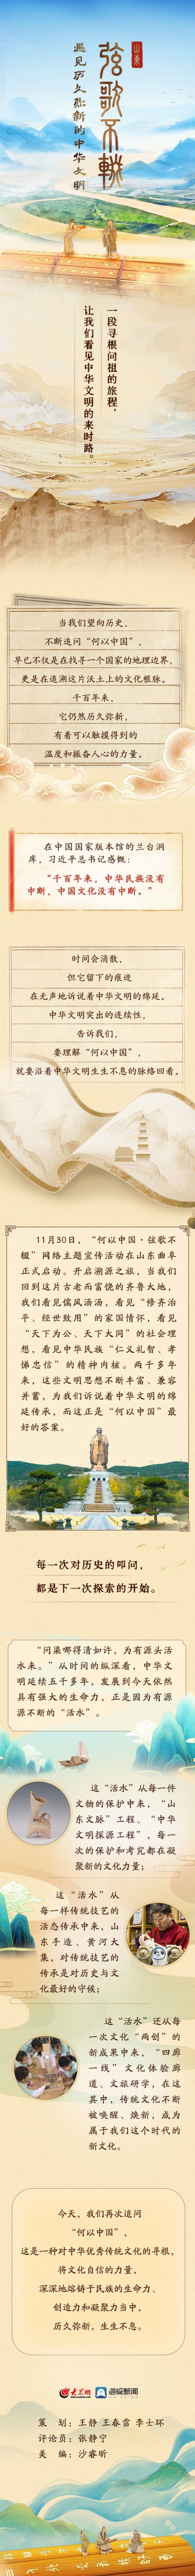 山东
弦歌不辍
遇见历久弥新的中华文明
一段寻根问祖的旅程，
让我们看见中华文明的来时路。
当我们望向历史，
不断追问“何以中国”，
早已不仅是在找寻一个国家的地理边界，
更是在追溯这片沃土上的文化根脉。
千百年来，
它仍然历久弥新，
有着可以触摸得到的
温度和振奋人心的力量。
在中国国家版本馆的兰台洞
库，习近平总书记感慨：
“千百年来，中华民族没有
中断，中国文化没有中断。”
时间会消散，
但它留下的痕迹
在无声地诉说着中华文明的绵延。
中华文明突出的连续性，
告诉我们，
要理解“何以中国”，
就要沿着中华文明生生不息的脉络回看。
11月30日，“何以中国·弦歌不
辍”网络主题宣传活动在山东曲阜
正式启动。开启溯源之旅，当我们
回到这片古老而富饶的齐鲁大地，
我们看见儒风汤汤，看见“修齐治
平、经世致用”的家国情怀，看见
“天下为公、天下大同”的社会理
想，看见中华民族“仁义礼智、孝
悌忠信”的精神内核。两千多年
来，这些文明思想不断丰富、兼容
并蓄，为我们诉说着中华文明的绵
延传承，而这正是“何以中国”最
好的答案。
每一次对历史的叩问，
都是下一次探索的开始。
“问渠哪得清如许，为有源头活
水来。”从时间的纵深看，中华文
明延续五千多年，发展到今天依然
具有强大的生命力，正是因为有源
源不断的“活水”。
这“活水”从每一件
文物的保护中来，“山
东文脉”工程、“中华
文明探源工程”，每一
次的保护和考究都在凝
聚新的文化力量；
这“活水”从
每一样传统技艺的
活态传承中来，山
东手造、黄河大
集，对传统技艺的
传承是对历史与文
化最好的守候；
这“活水”还从每
一次文化“两创”的
新成果中来，“四廊
一线”文化体验廊
道、文旅研学，在这
其中，传统文化不断
被唤醒、焕新，成为
属于我们这个时代的
新文化。
今天，我们再次追问
“何以中国”，
这是一种对中华优秀传统文化的寻根，
将文化自信的力量，
深深地熔铸于民族的生命力、
创造力和凝聚力当中，
历久弥新，生生不息。
大众网 海报新闻
策　划：王静 王春雷 李士环
评论员：张静宁
美　编：沙睿昕